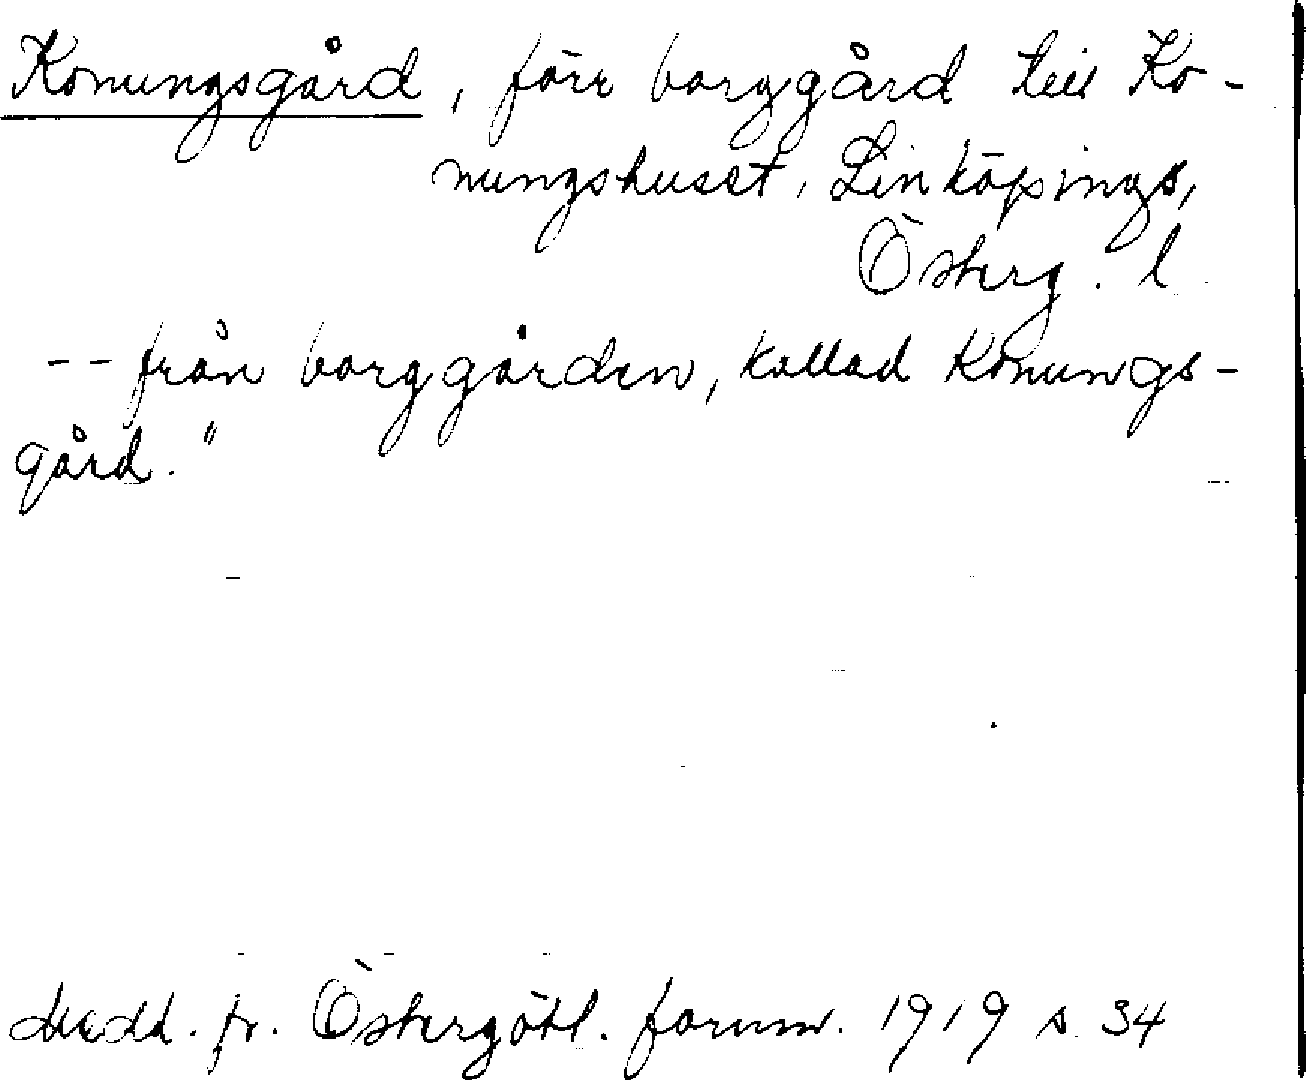 Konungsgård, förr borggård till Ko-
nungshuset, Linköpings,
Österg. l
-- från borggården, kallad Konungs-
gård."
Medd. fr. Östergötl. fornm. 1919 s. 34